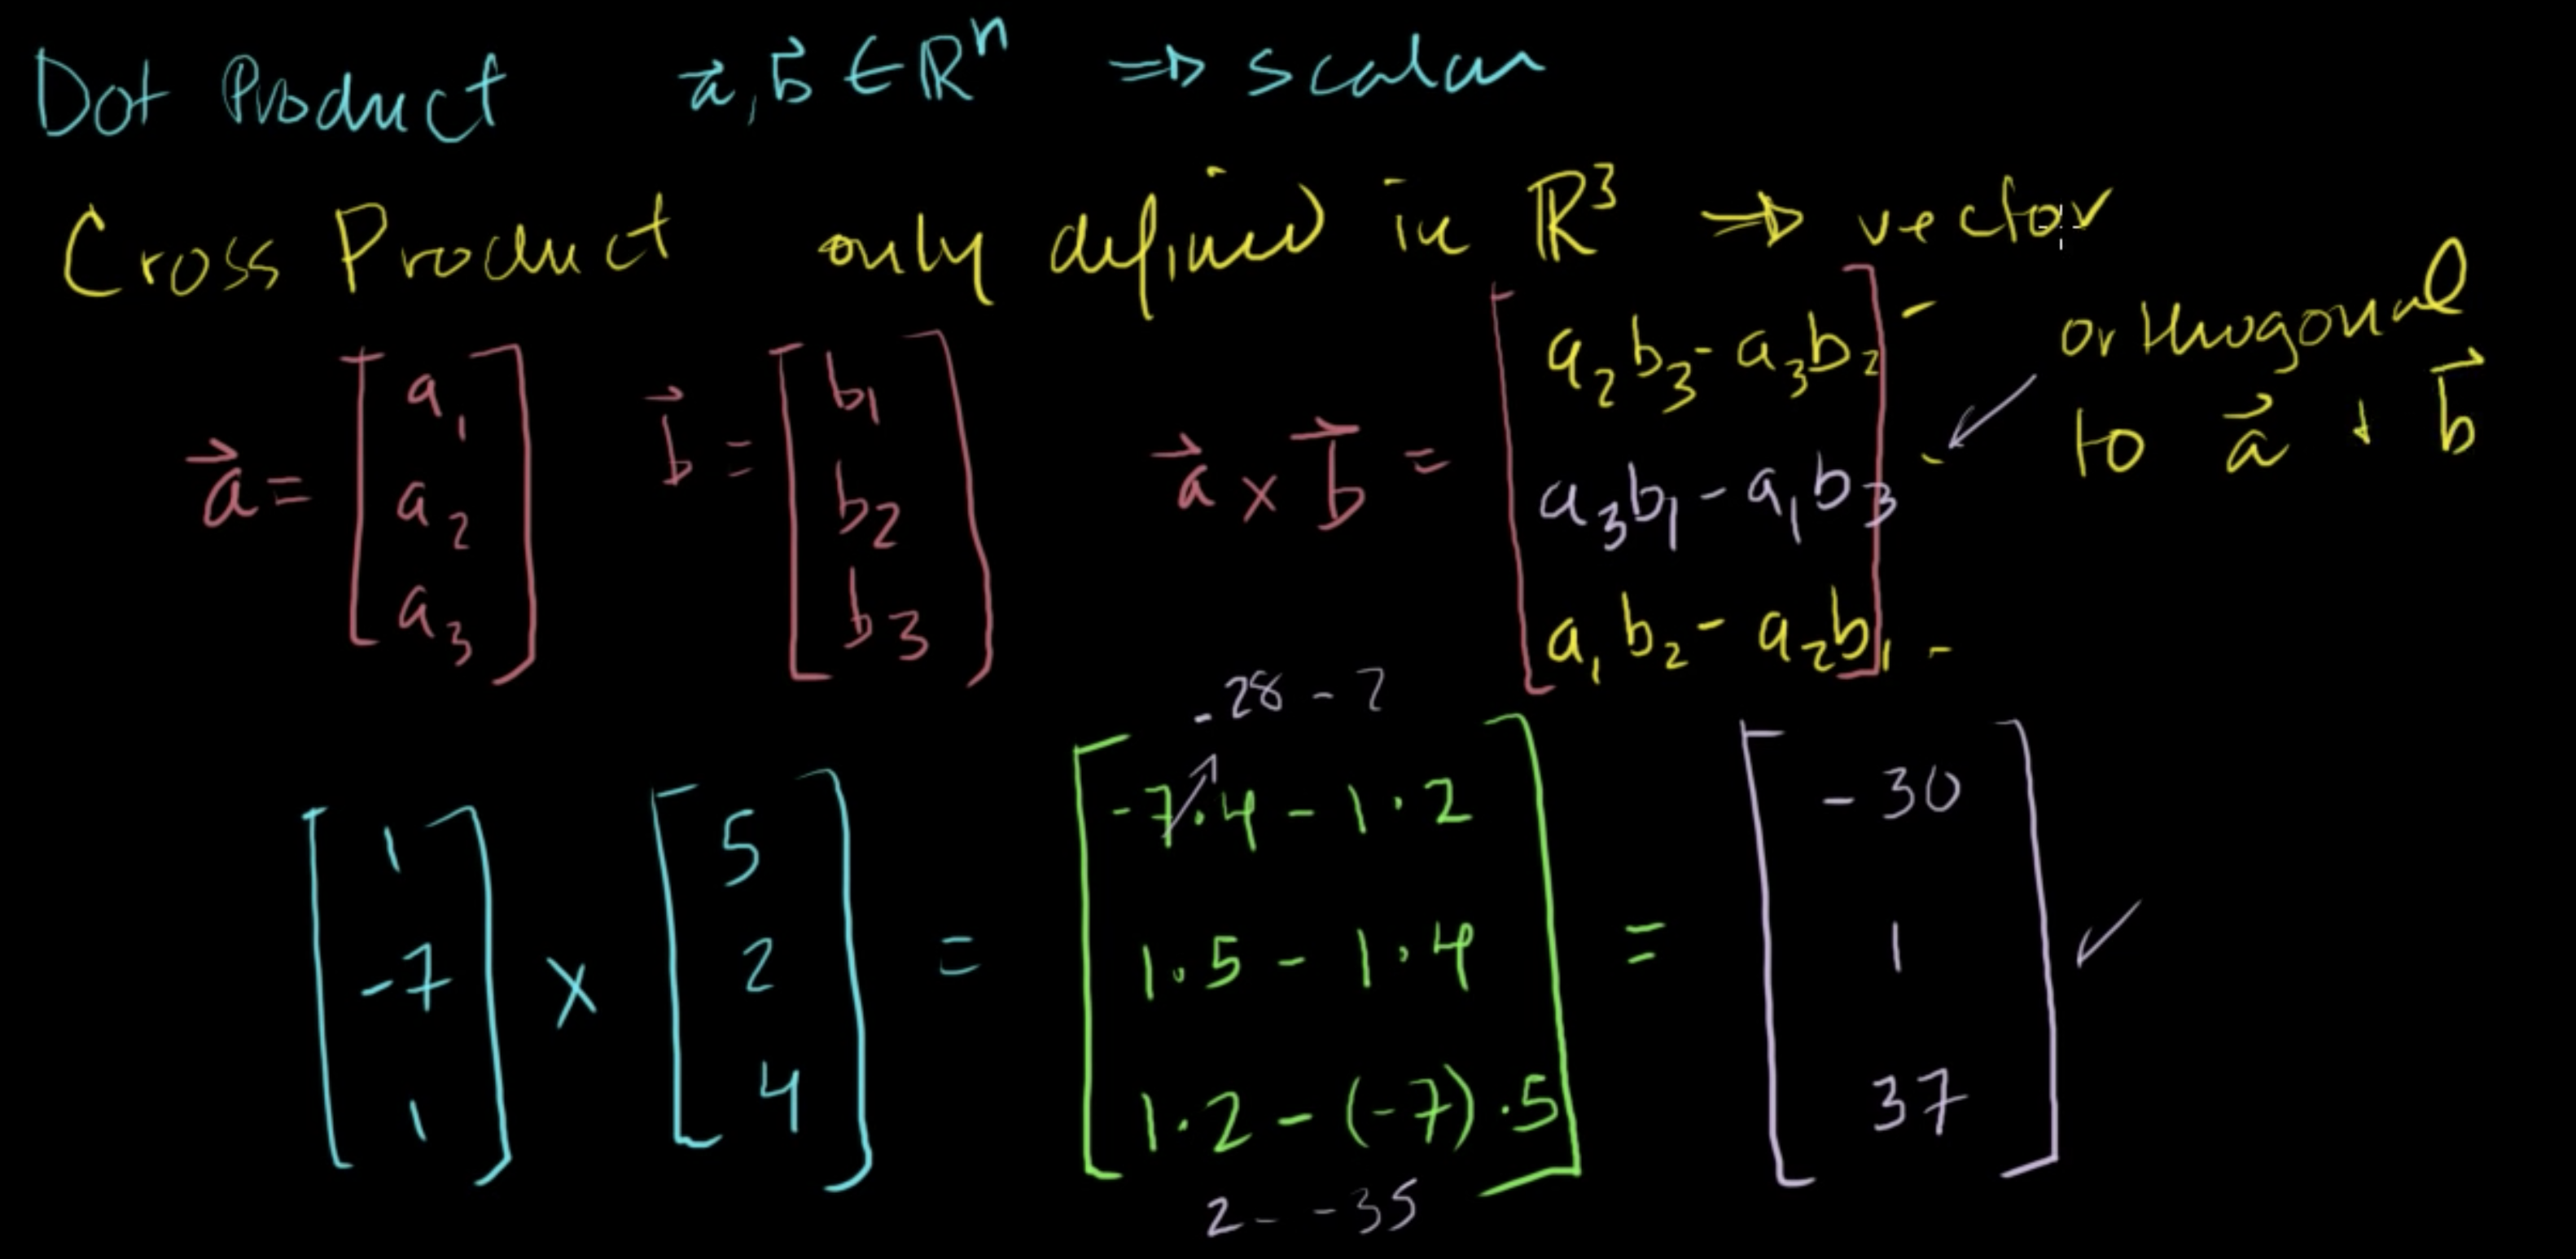 Dot Product    a⃗, b⃗ ∈ ℝⁿ  ⇒ scalar
Cross Product    only defined in ℝ³  ⇒ vector
a⃗ = [a₁ a₂ a₃]    b⃗ = [b₁ b₂ b₃]    a⃗ × b⃗ = [a₂b₃ - a₃b₂   a₃b₁ - a₁b₃   a₁b₂ - a₂b₁]
orthogonal
to a⃗ + b⃗
-28 - 2
[1 -7 1] × [5 2 4] = [-7·4 - 1·2   1·5 - 1·4   1·2 - (-7)·5] = [-30 1 37]
2 - -35